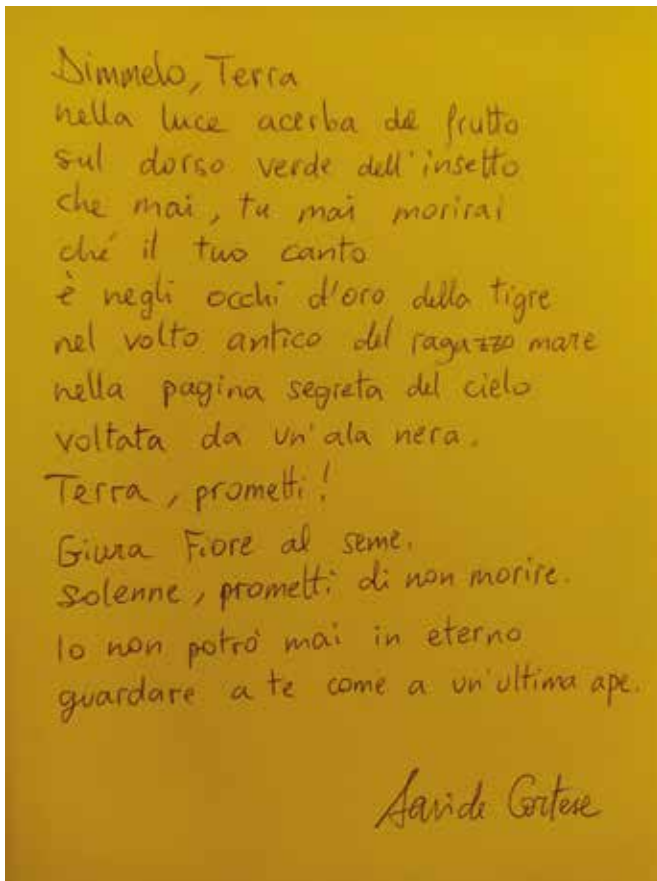 Dimmelo, Terra
nella luce acerba del frutto
sul dorso verde dell'insetto
che mai, tu mai morirai
ché il tuo canto
è negli occhi d'oro della tigre
nel volto antico del ragazzo mare
nella pagina segreta del cielo
voltata da un'ala nera.
Terra, prometti!
Giura Fiore al seme.
Solenne, prometti di non morire.
Io non potrò mai in eterno
guardare a te come a un'ultima ape.
Davide Cortese